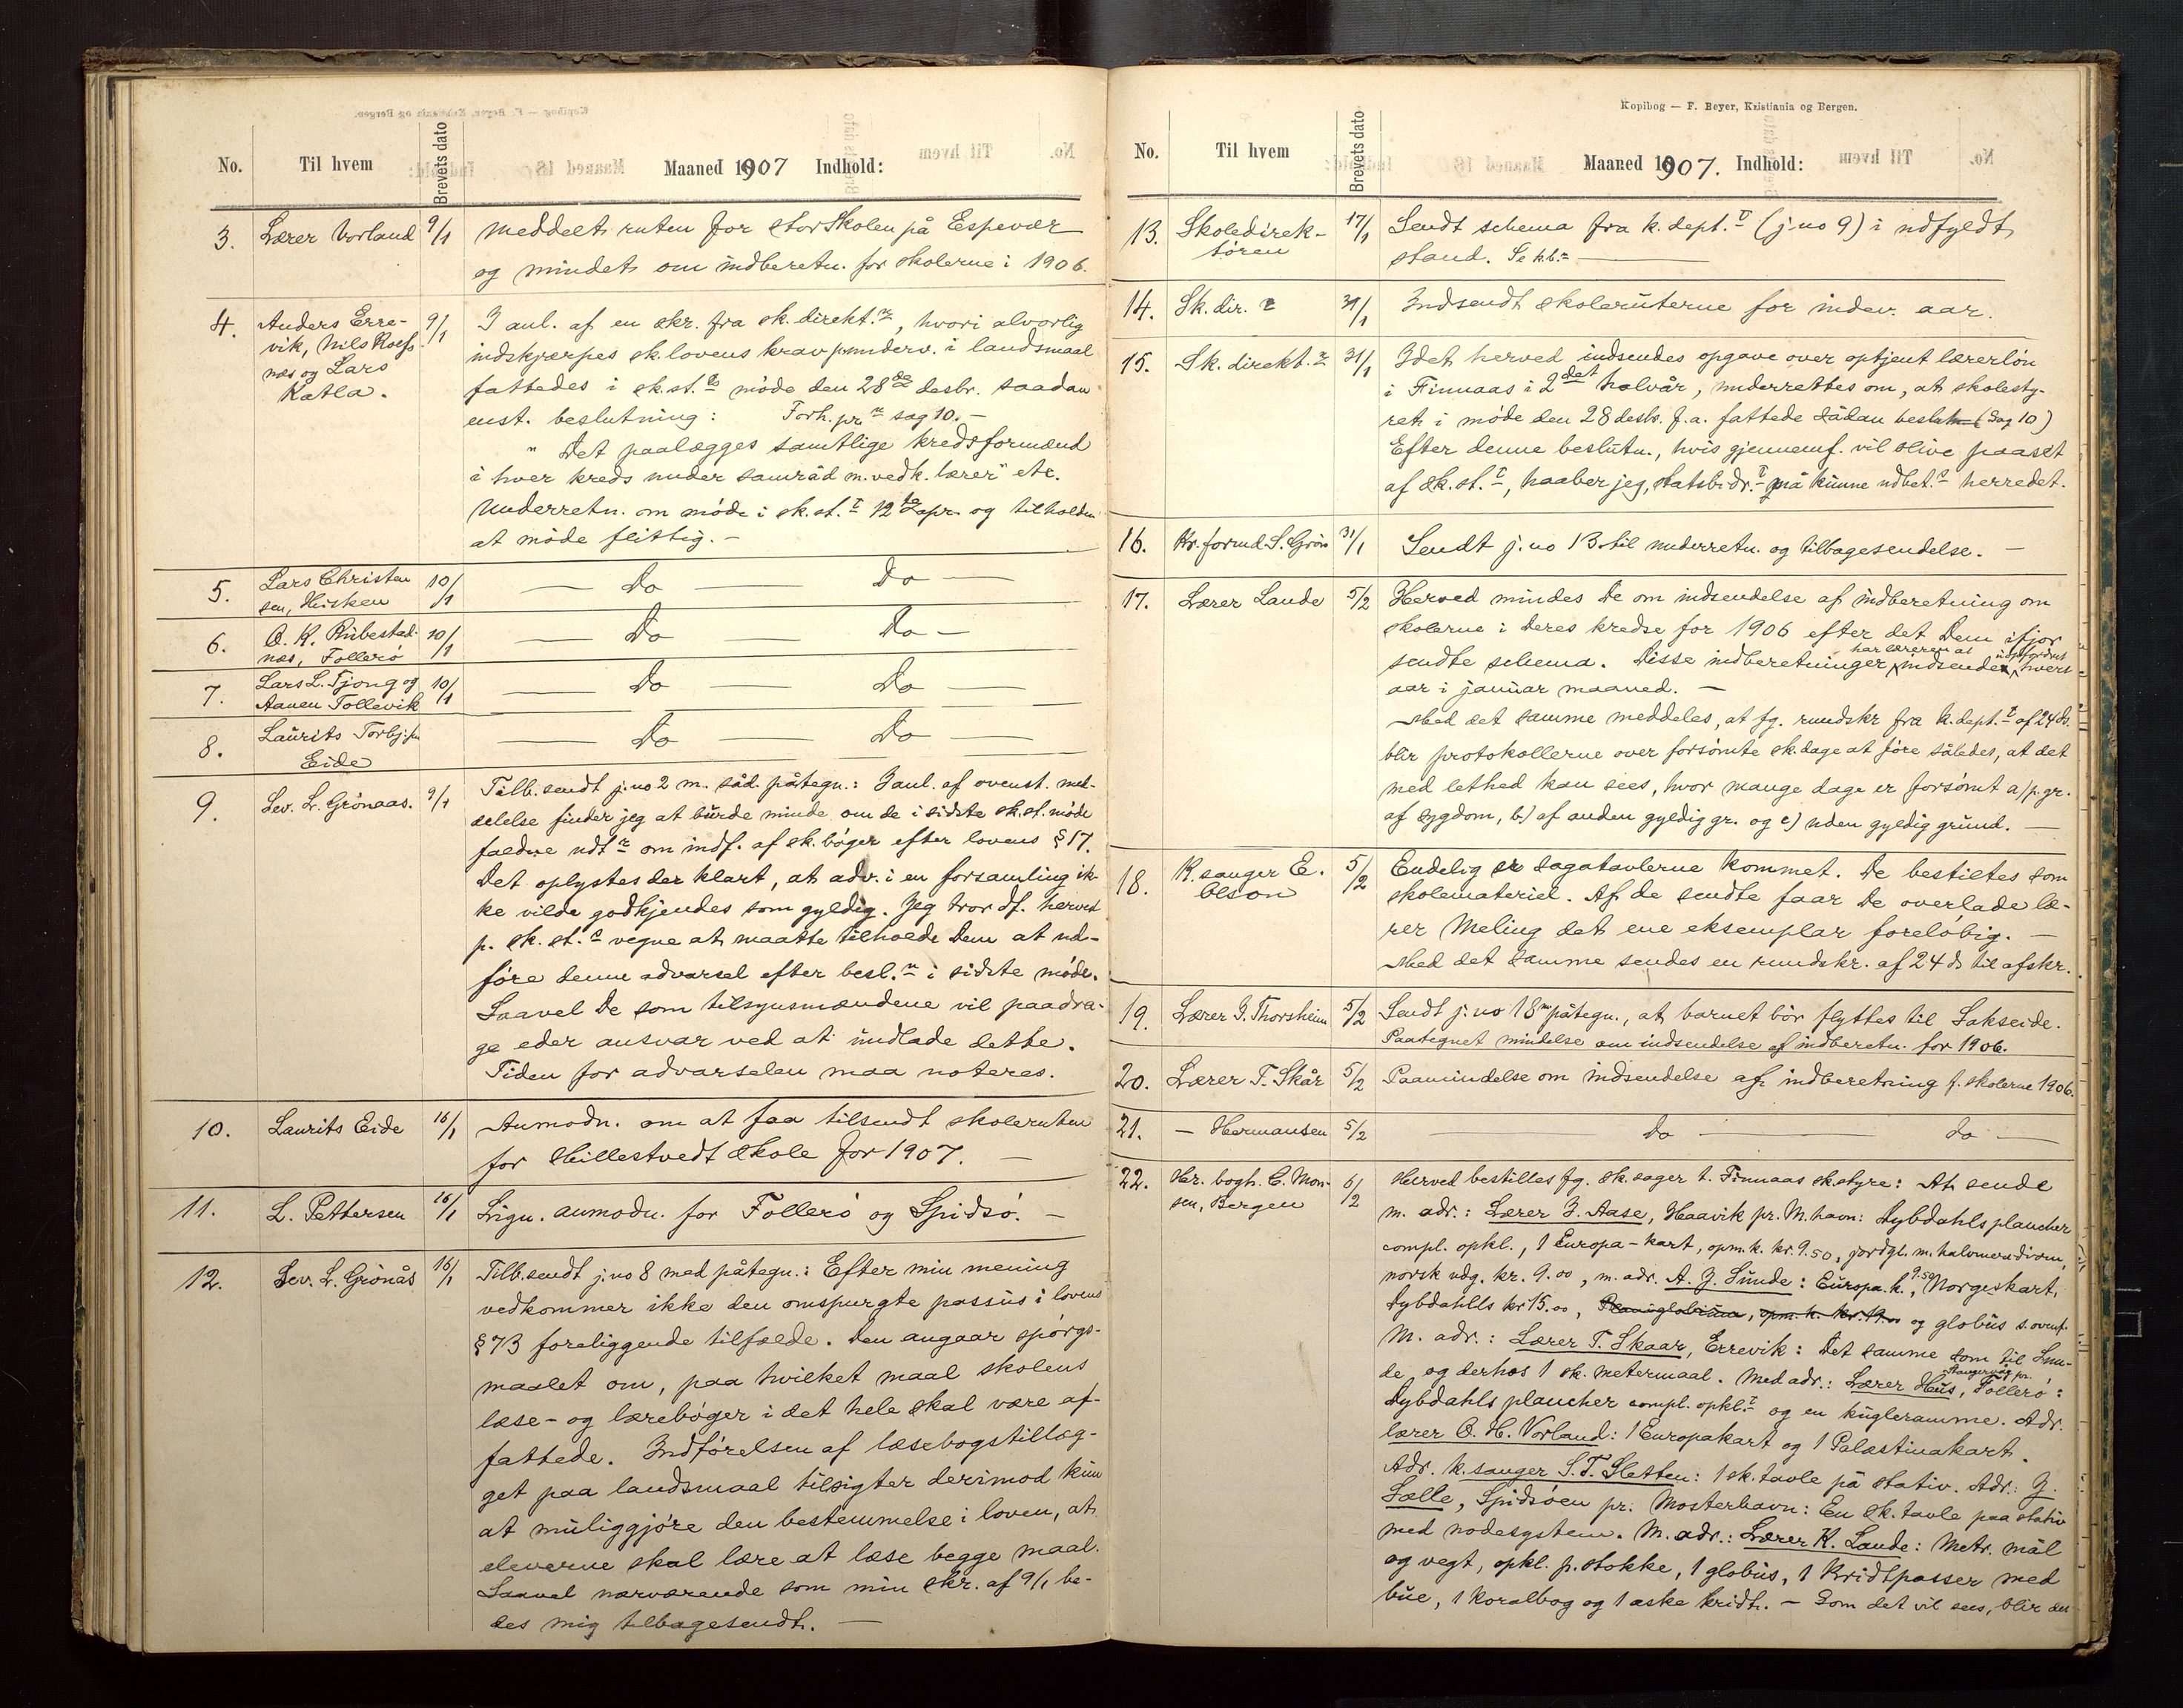 No. Til hvem Brevets dato Maaned 1907 Indhold:
3. Lærer Vorland 9/1 Meddelt ruten for storskolen på Espevær
og mindet om indberetn. for skolerne i 1906.
4. Anders Erre- 9/1 I anl. af en skr. fra sk.direkt.r, hvori alvorlig
vik, Nils Roks- indskjærpes sk.lovens krav p. underv. i landsmaal
næs og Lars fattedes i sk.st.ts møde den 28de desbr. saadan
Katla. enst. beslutning: Forh. pr sag 10. –
" Det paalægges samtlige kredsformænd
i hver kreds under samråd m. vedk. lærer" etc.
Underretn. om møde i sk.st.t 12te apr. og tilholden
at møde flittig. –
5. Lars Christen 10/1 — Do — Do —
sen, Hisken
6. O. K. Rubestad- 10/1 — Do — Do —
næs, Follerö
7. Lars L. Tjong og 10/1 — Do — Do —
Aanen Tollevik
8. Laurits Torbj.sn — Do — Do —
Eide
9. Sev. L. Grönaas. 9/1 Tilb.sendt j.no 2 m. såd. påtegn.: I anl. af ovenst. med-
delelse finder jeg at burde minde om de i sidste sk.st.møde
faldne udt.r om indf. af sk.bøger efter lovens § 17.
Det oplystes der klart, at adv. i en forsamling ik-
ke vilde godkjendes som gyldig. Jeg tror df. herved
p. sk.st.s vegne at maatte tilholde Dem at ud-
føre denne advarsel efter besl.n i sidste møde.
Saavel De som tilsynsmændene vil paadra-
ge eder ansvar ved at undlade dette.
Tiden for advarselen maa noteres.
10. Laurits Eide 16/1 Anmodn. om at faa tilsendt skoleruten
for Hillestvedt skole for 1907. —
11. L. Pettersen 16/1 Lign. anmodn. for Follerö og Spidsö. –
12. Sev. L. Grönås 16/1 Tilb.sendt j.no 8 med påtegn.: Efter min mening
vedkommer ikke den omspurgte passus i lovens
§ 73 foreliggende tilfælde. Den angaar spörgs-
maalet om, paa hvilket maal skolens
læse- og lærebøger i det hele skal være af-
fattede. Indførelsen af læsebogstillæg-
get paa landsmaal tilsigter derimod kun
at muliggjøre den bestemmelse i loven, at
eleverne skal lære at læse begge maal.
Saavel nærværende som min skr. af 9/1 be-
des mig tilbagesendt. —
Kopibog — F. Beyer, Kristiania og Bergen.
No. Til hvem Brevets dato Maaned 1907. Indhold:
13. Skoledirek- 17/1 Sendt schema fra k.dept.t (j.no 9) i udfyldt
tören stand. Se k.b. —
14. Sk.dir.r 31/1 Indsendt skoleruterne for indev. aar.
15. Sk.direkt.r 31/1 Idet herved indsendes opgave over optjent lærerlön
i Finnaas i 2det halvår, underrettes om, at skolesty-
ret i møde den 28 desbr. f.a. fattede sådan beslutn (Sag 10)
Efter denne beslutn., hvis gjennemf. vil blive paaset
af sk.st.t, haaber jeg, statsbidr.t må kunne udbet.s herredet.
16. Kr.formd. S. Grön 31/1 Sendt j.no 13 til underretn. og tilbagesendelse. –
17. Lærer Lande 5/2 Herved mindes De om indsendelse af indberetning om
skolerne i Deres kredse for 1906 efter det Dem ifjor
sendte schema. Disse indberetninger har læreren at indsende uopfordret hvert
aar i januar maaned. –
Med det samme meddeles, at fg. rundskr fra k.dept.t af 24 ds.
blir protokollerne over forsömte sk.dage at före således, at det
med lethed kan sees, hvor mange dage er forsömt a) p.gr.
af sygdom, b) af anden gyldig gr. og c) uden gyldig grund. —
18. K.sanger E. 5/2 Endelig er sagatavlerne kommet. De bestiltes som
Olson skolemateriel. Af de sendte faar De overlade læ-
rer Meling det ene eksemplar foreløbig. –
Med det samme sendes en rundskr. af 24 ds til afskr.
19. Lærer J. Thorsheim 5/2 Sendt j.no 18 m påtegn., at barnet bör flyttes til Sakseide.
Paategnet mindelse om indsendelse af indberetn. for 1906.
20. Lærer T. Skår 5/2 Paamindelse om indsendelse af indberetning f. skolerne 1906.
21. – Hermansen 5/2 — do — do —
22. Hr. bogh. C. Mon- 6/2 Herved bestilles fg. sk.sager t. Finnaas sk.styre: At sende
sen, Bergen m. adr.: Lærer J. Aase, Haavik pr. M.havn: Dybdahls plancher
compl. opkl., 1 Europa-kart, opm.k. kr. 9.50, jordgl. m. halvmeridian,
norsk udg. kr. 9.00, m. adr. A. J. Sunde: Europa.k. 9.50, Norgeskart,
Dybdahls kr 15.00, Planiglobium, opm.k. kr. 19.00 og globus s. ovenf.
M. adr.: Lærer T. Skaar, Errevik: Det samme som til Sun-
de og derhos 1 sk. metermaal. Med adr.: Lærer Hus, Stangervåg pr. Follerö:
Dybdahls plancher compl. opkl.t og en kugleramme. Adr.
lærer O. H. Vorland: 1 Europakart og 1 Palæstinakart.
Adr. k.sanger S. T. Sletten: 1 sk.tavle på stativ. Adr: J.
Sælle, Spidsöen pr. Mosterhavn: En sk.tavle paa stativ
med nodesystem. M. adr.: Lærer K. Lande: Metr. mål
og vegt, opkl. p. stokke, 1 globus, 1 kridtpasser med
bue, 1 koralbog og 1 æske kridt. – Som det vil sees, blir der